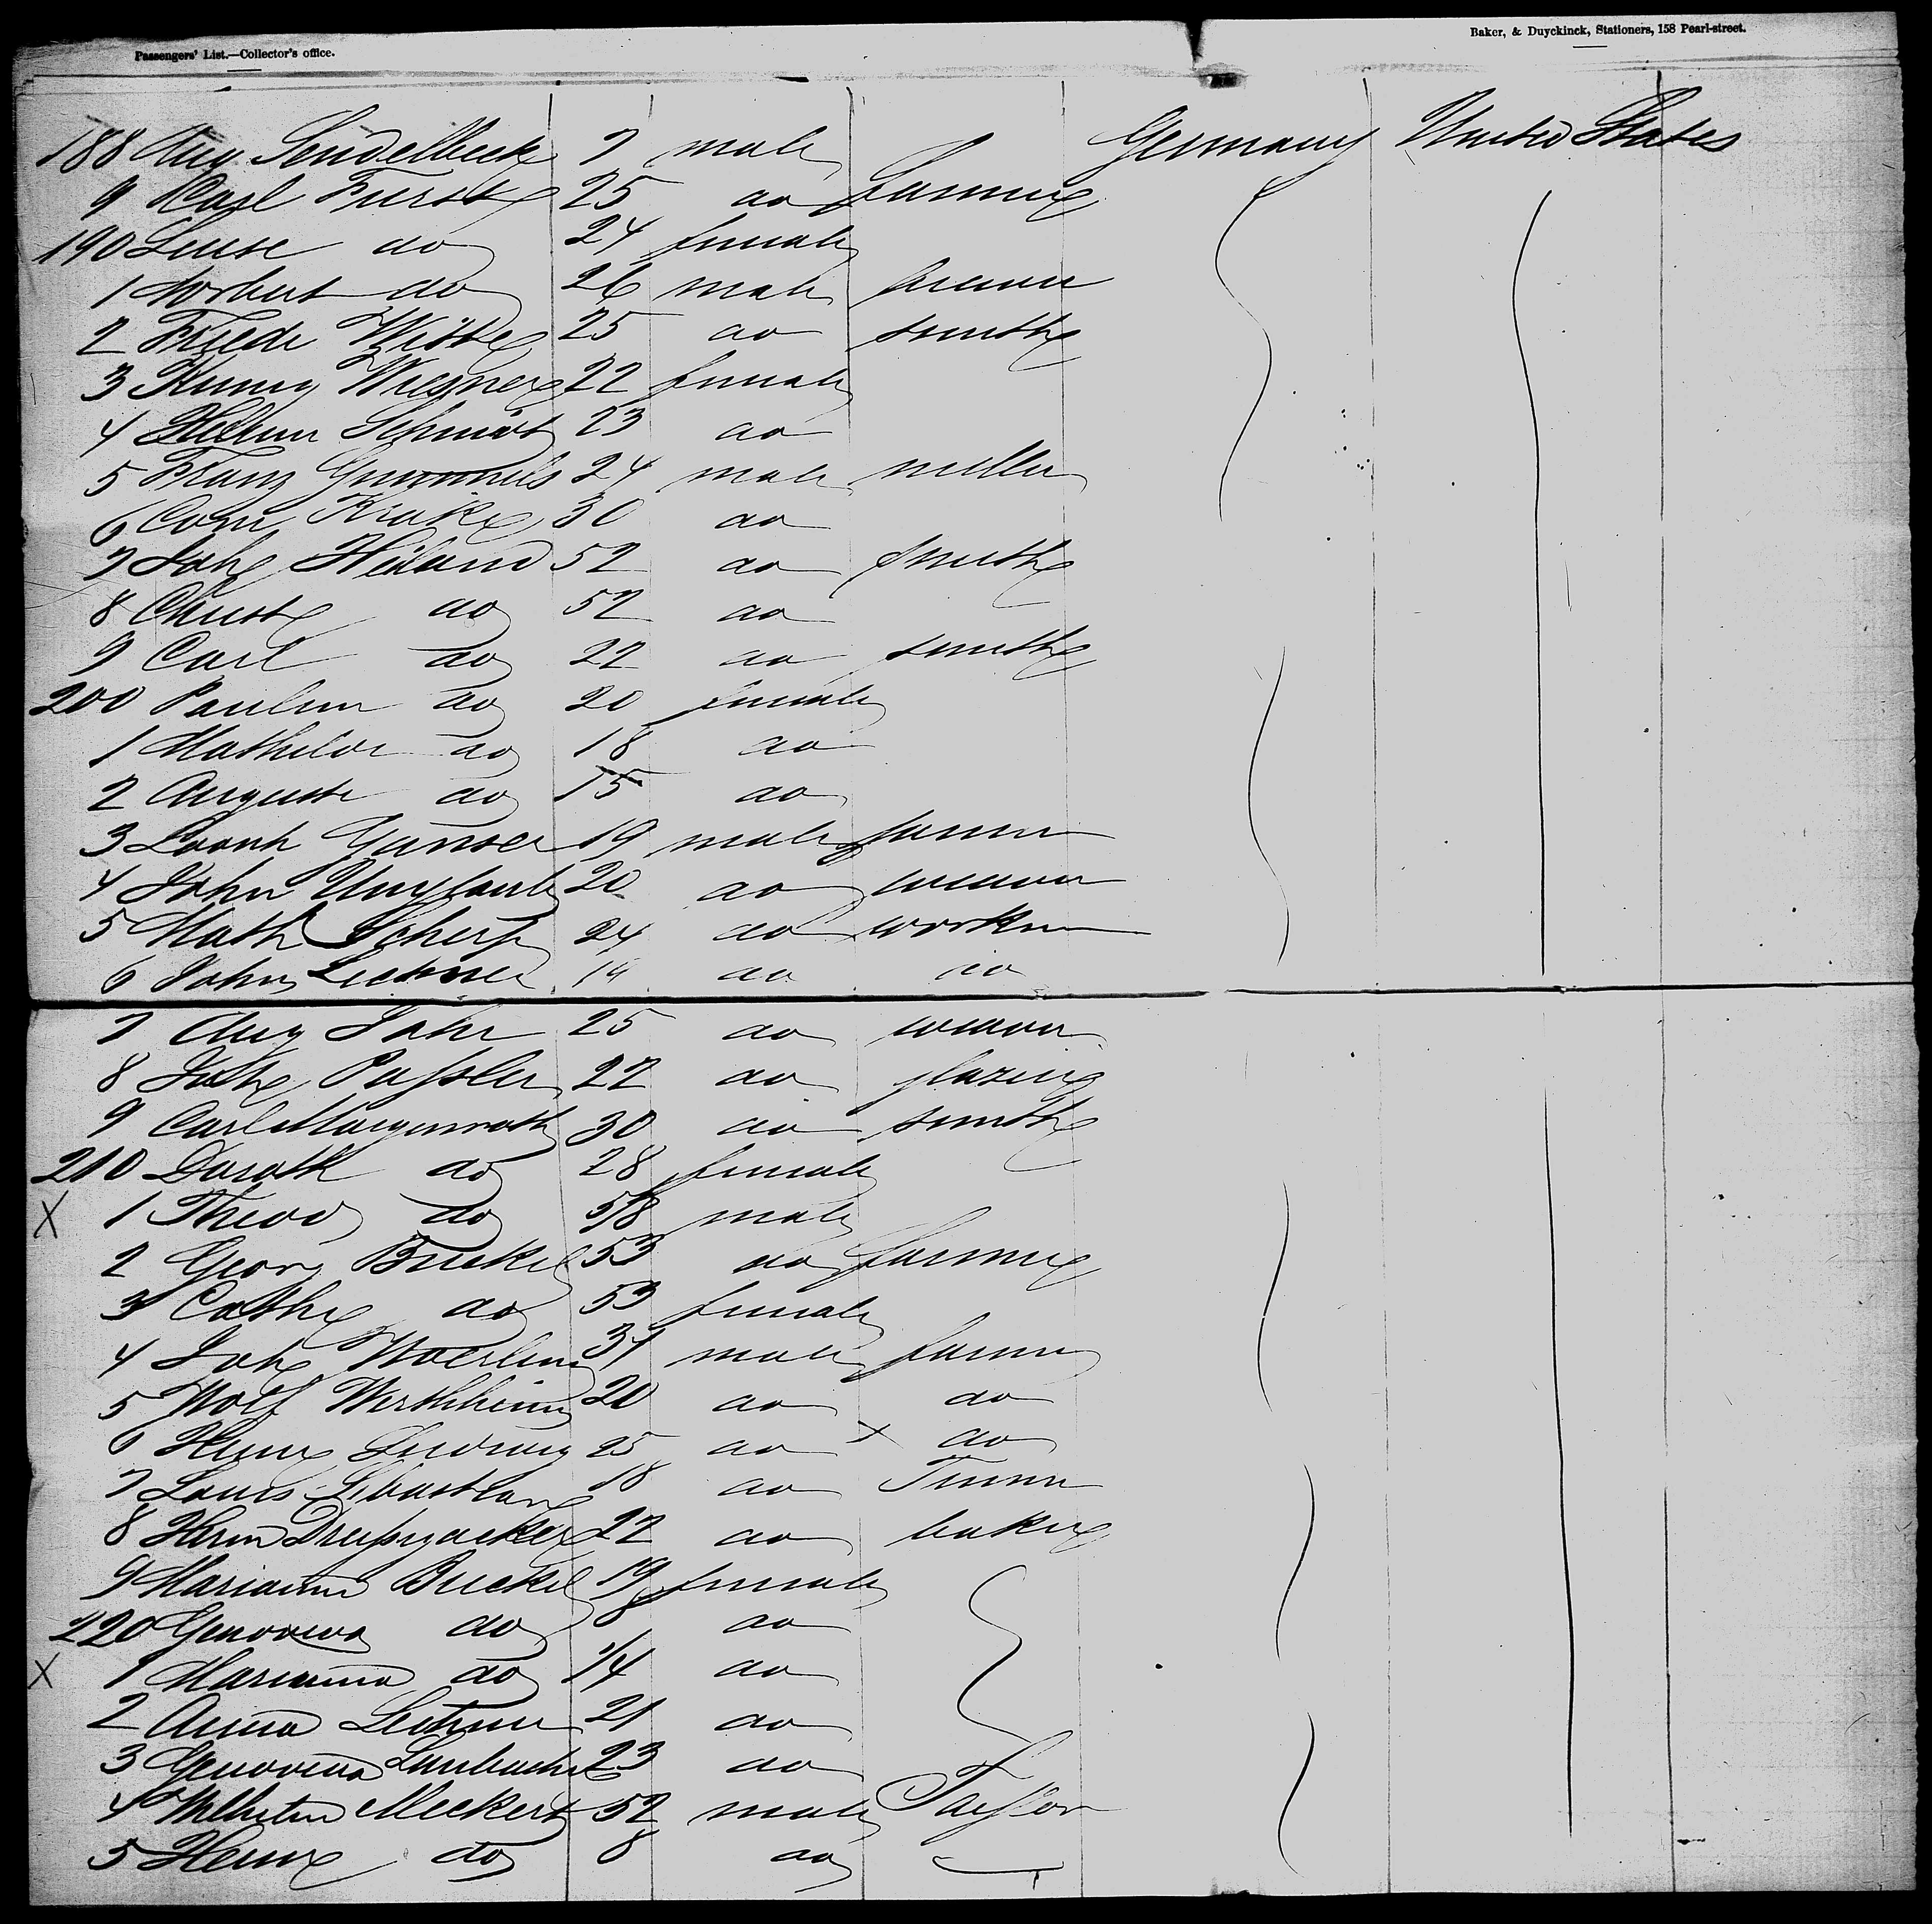 Passengers' List.—Collector's office.
Baker, & Duyckinck, Stationers, 158 Pearl-street.
188 Aug Sendelbeck 7 male Germany United States
9 Carl Furst 25 do farmer
190 Luise do 24 female
1 Norbert do 26 male
2 Friedr Witte 25 do smith
3 Wiesner 22 female
4 Schmidt 23 do
5 Franz 24 male miller
6 Corn Krake 30 do
7 Joh Heiland 52 do smith
8 Christ do 52 do
9 Carl do 22 do smith
200 Paulin do 20 female
1 Mathilde do 18 do
2 Auguste do 15 do
3 19 male farmer
4 John 20 do weaver
5 Math Scherf 24 do workm
6 John Lechner do do
7 Aug Jahr 25 do weaver
8 Joh Passler 22 do
9 Carl Morgenroth 30 do smith
210 Doroth do 28 female
X 1 Theod do 5/8 male
2 Georg Buckel 53 do farmer
3 Cath do 53 female
4 Joh 31 male farmer
5 Wolf Werthheim 20 do do
6 Ludwig 25 do X do
7 Louis Sebastian 18 do
8 Herm Dressgacker 22 do baker
9 Marianna Buckel 19 female
220 Genoveva do 8 do
X 1 Marianna do 1/4 do
2 Anna Lechner 21 do
3 Genoveva 23 do
4 Wilhelm Meckert 52 male Taylor
5 Henr do 8 do